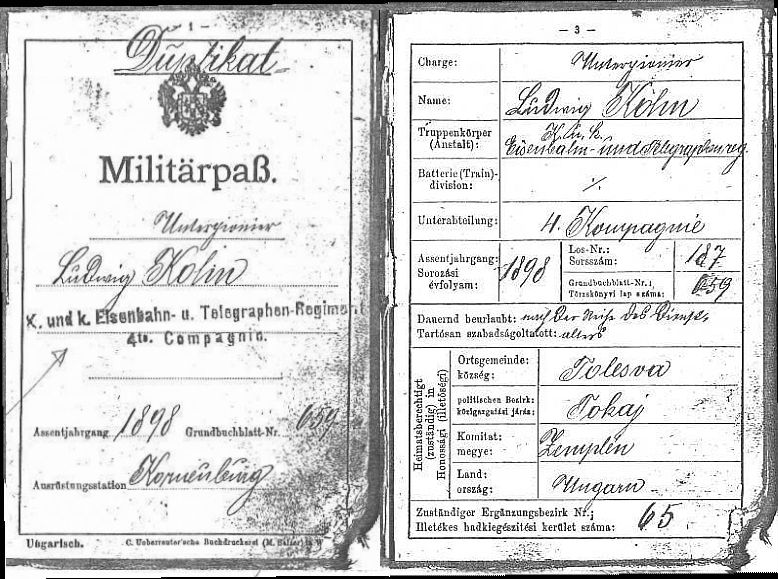 1
Duplikat
Militärpaß.
Unterpionier
Ludwig Kohn
K. und k. Eisenbahn- u. Telegraphen-Regiment
4te. Compagnie.
Assentjahrgang 1898 Grundbuchblatt-Nr. 659
Ausrüstungsstation Korneuburg
Ungarisch.
C. Ueberreuter'sche Buchdruckerei (M. Salzer) in W
— 3 —
Charge: Unterpionier
Name: Ludwig Kohn
Truppenkörper (Anstalt): K. u. k. Eisenbahn- und Telegraphenreg.
Batterie (Train)-division: ⁒
Unterabteilung: 4. Kompagnie
Assentjahrgang: Sorozási évfolyam: 1898
Los-Nr.: Sorsszám: 187
Grundbuchblatt-Nr.: Törzskönyvi lap száma: 659
Dauernd beurlaubt: nach der Reihe des Dienst-
Tartósan szabadságoltatott: alters
Heimatsberechtigt (zuständig) in
Honossági (illetőségi)
Ortsgemeinde: község: Tolesva
politischen Bezirk: közigazgatási járás: Tokaj
Komitat: megye: Zemplén
Land: ország: Ungarn
Zuständiger Ergänzungsbezirk Nr.:
Illetékes hadkiegészítési kerület száma: 65